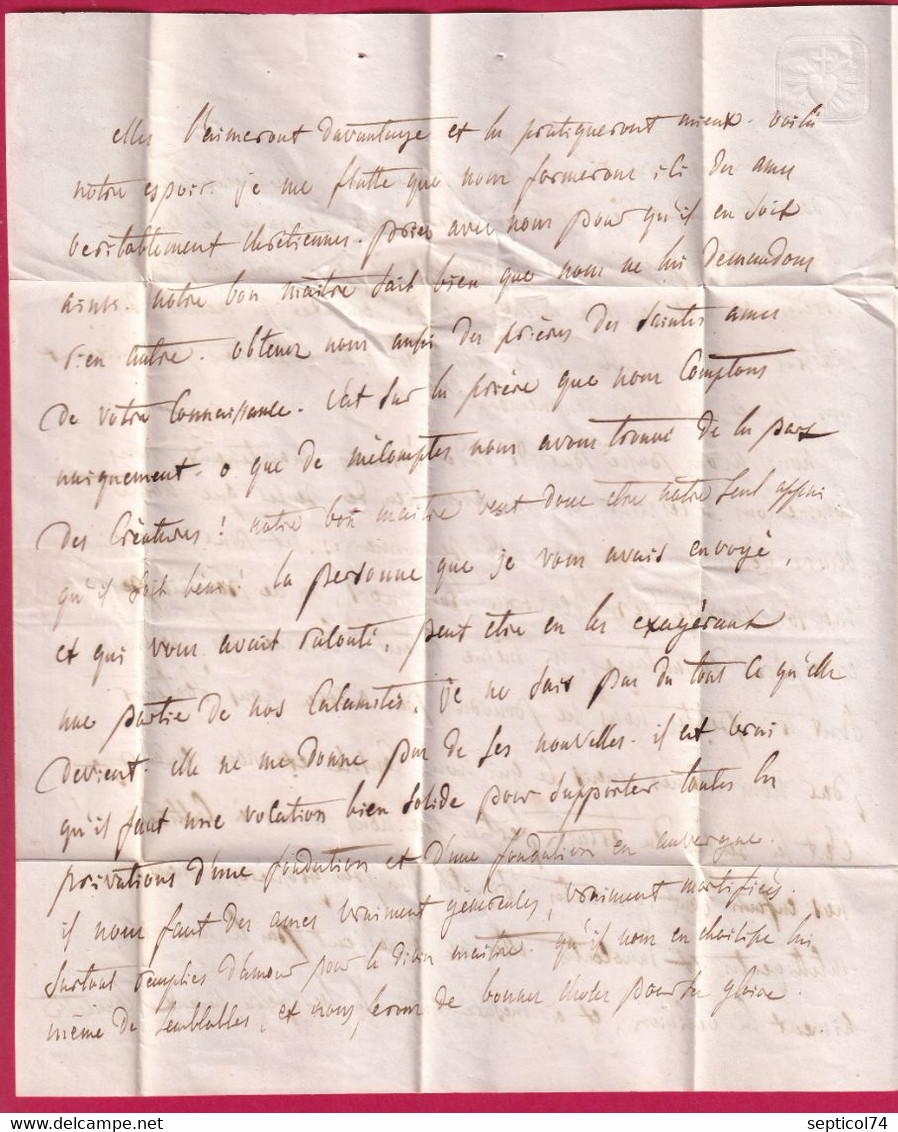 elles l'aimeront davantage et la pratiqueront mieux. voilà
notre espoir. je me flatte que nous formerons ici des ames
veritablement chretiennes. priez avec nous pour qu'il en soit
ainsi. notre bon maitre sait bien que nous ne lui demandons
rien autre. obtenez nous aussi des prières des saintes ames
de votre connaissance. c'est sur la prière que nous comptons
uniquement. o que de mécomptes nous avons trouvé de la part
des créatures! notre bon maitre veut donc etre notre seul appui
qu'il soit béni! la personne que je vous avais envoyé,
et qui vous avait raconté, peut etre en les exagérant
une partie de nos calamités, je ne sais pas du tout ce qu'elle
devient. elle ne me donne pas de ses nouvelles. il est vrai
qu'il faut une vocation bien solide pour supporter toutes les
privations d'une fondation et d'une fondation en auvergne.
il nous faut des ames vraiment généreuses, vraiment mortifiées.
surtout remplies d'amour pour le divin maitre. qu'il nous en choisisse lui
même de semblables, et nous ferons de bonnes choses pour sa gloire.
septicol74